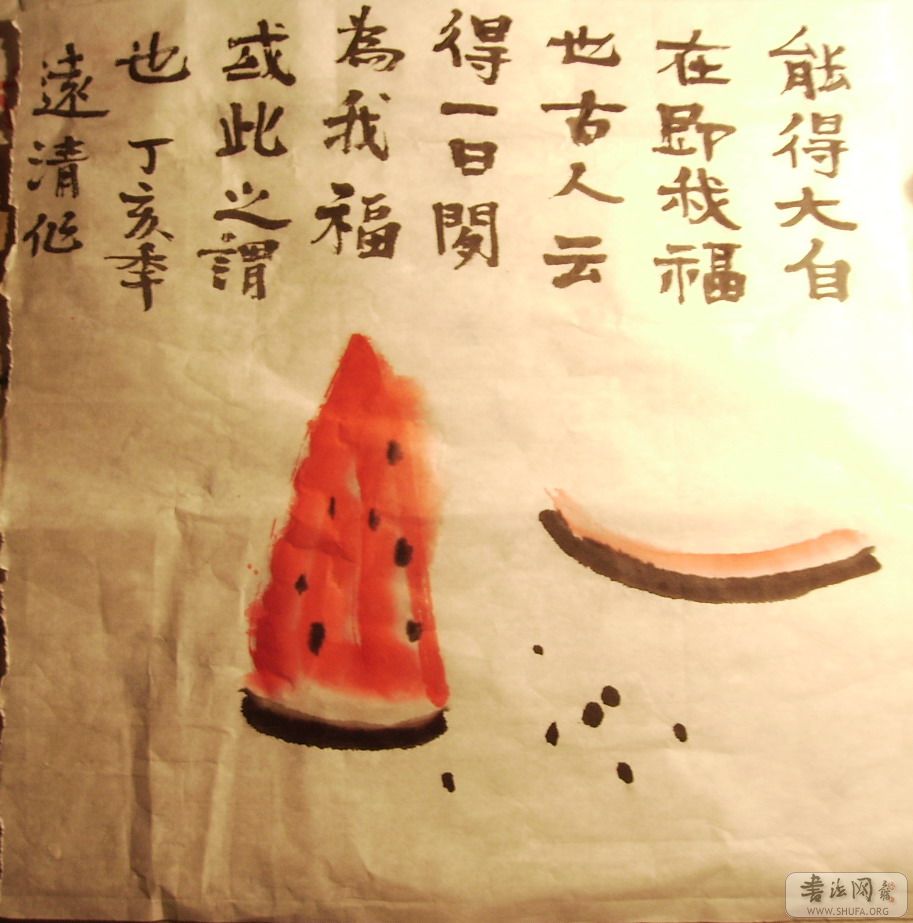 能得大自
在即我福
也古人云
得一日閑
為我福
或此之謂
也 丁亥年
遠清作
書法网
WWW.SHUFA.ORG